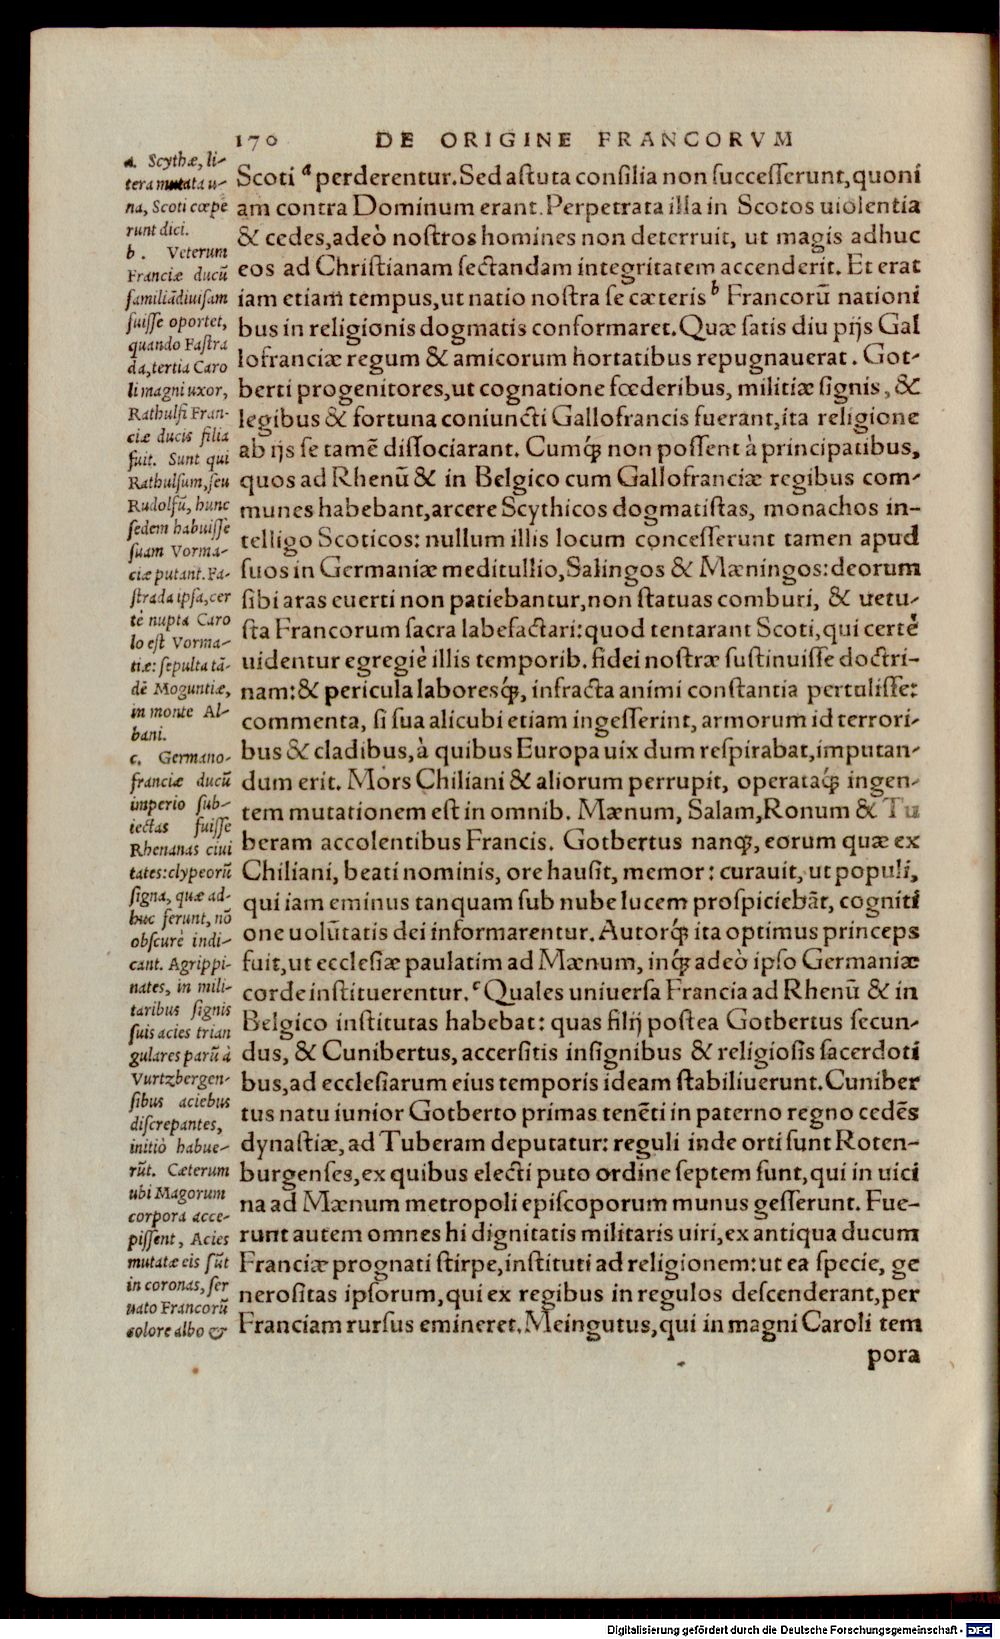 170 DE ORIGINE FRANCORVM
a. Scythæ, li-
tera mutata u-
na, Scoti cœpe
runt dici.
b. Veterum
Franciæ ducū
familiā diuisam
fuisse oportet,
quando Fastra
da, tertia Caro
li magni uxor,
Rathulfi Fran-
ciæ ducis filia
fuit. Sunt qui
Rathulfum, seu
Rudolfū, hunc
sedem habuisse
suam Vorma-
ciæ putant. Fa-
strada ipsa, cer
tè nupta Caro
lo est Vorma-
tiæ: sepulta tā-
dē Moguntiæ,
in monte Al-
bani.
c. Germano-
franciæ ducū
imperio sub-
iectas fuisse
Rhenanas ciui
tates: clypeorū
signa, quæ ad-
huc ferunt, nō
obscurè indi-
cant. Agrippi-
nates, in mili-
taribus signis
suis acies trian
gulares parū à
Vurtzbergen-
sibus aciebus
discrepantes,
initiò habue-
rūt. Cæterum
ubi Magorum
corpora acce-
pissent, Acies
mutatæ eis sūt
in coronas, ser
uato Francorū
colore albo &
Scoti a perderentur. Sed astuta consilia non successerunt, quoni
am contra Dominum erant. Perpetrata illa in Scotos uiolentia
& cedes, adeò nostros homines non deterruit, ut magis adhuc
eos ad Christianam sectandam integritatem accenderit. Et erat
iam etiam tempus, ut natio nostra se cæteris b Francorū nationi
bus in religionis dogmatis conformaret. Quæ satis diu pijs Gal
lofranciæ regum & amicorum hortatibus repugnauerat. Got-
berti progenitores, ut cognatione fœderibus, militiæ signis, &
legibus & fortuna coniuncti Gallofrancis fuerant, ita religione
ab ijs se tamē dissociarant. Cumq́; non possent à principatibus,
quos ad Rhenū & in Belgico cum Gallofranciæ regibus com-
munes habebant, arcere Scythicos dogmatistas, monachos in-
telligo Scoticos: nullum illis locum concesserunt tamen apud
suos in Germaniæ meditullio, Salingos & Mæningos: deorum
sibi aras euerti non patiebantur, non statuas comburi, & uetu-
sta Francorum sacra labefactari: quod tentarant Scoti, qui certè
uidentur egregiè illis temporib. fidei nostræ sustinuisse doctri-
nam: & pericula laboresq́;, infracta animi constantia pertulisse:
commenta, si sua alicubi etiam ingesserint, armorum id terrori-
bus & cladibus, à quibus Europa uix dum respirabat, imputan-
dum erit. Mors Chiliani & aliorum perrupit, operataq́; ingen-
tem mutationem est in omnib. Mænum, Salam, Ronum & Tu
beram accolentibus Francis. Gotbertus nanq;, eorum quæ ex
Chiliani, beati nominis, ore hausit, memor: curauit, ut populi,
qui iam eminus tanquam sub nube lucem prospiciebāt, cogniti
one uolūtatis dei informarentur. Autorq́; ita optimus princeps
fuit, ut ecclesiæ paulatim ad Mænum, inq́; adeò ipso Germaniæ
corde instituerentur. c Quales uniuersa Francia ad Rhenū & in
Belgico institutas habebat: quas filij postea Gotbertus secun-
dus, & Cunibertus, accersitis insignibus & religiosis sacerdoti
bus, ad ecclesiarum eius temporis ideam stabiliuerunt. Cuniber
tus natu iunior Gotberto primas tenēti in paterno regno cedēs
dynastiæ, ad Tuberam deputatur: reguli inde orti sunt Roten-
burgenses, ex quibus electi puto ordine septem sunt, qui in uici
na ad Mænum metropoli episcoporum munus gesserunt. Fue-
runt autem omnes hi dignitatis militaris uiri, ex antiqua ducum
Franciæ prognati stirpe, instituti ad religionem: ut ea specie, ge
nerositas ipsorum, qui ex regibus in regulos descenderant, per
Franciam rursus emineret. Meingutus, qui in magni Caroli tem
pora
Digitalisierung gefördert durch die Deutsche Forschungsgemeinschaft - DFG